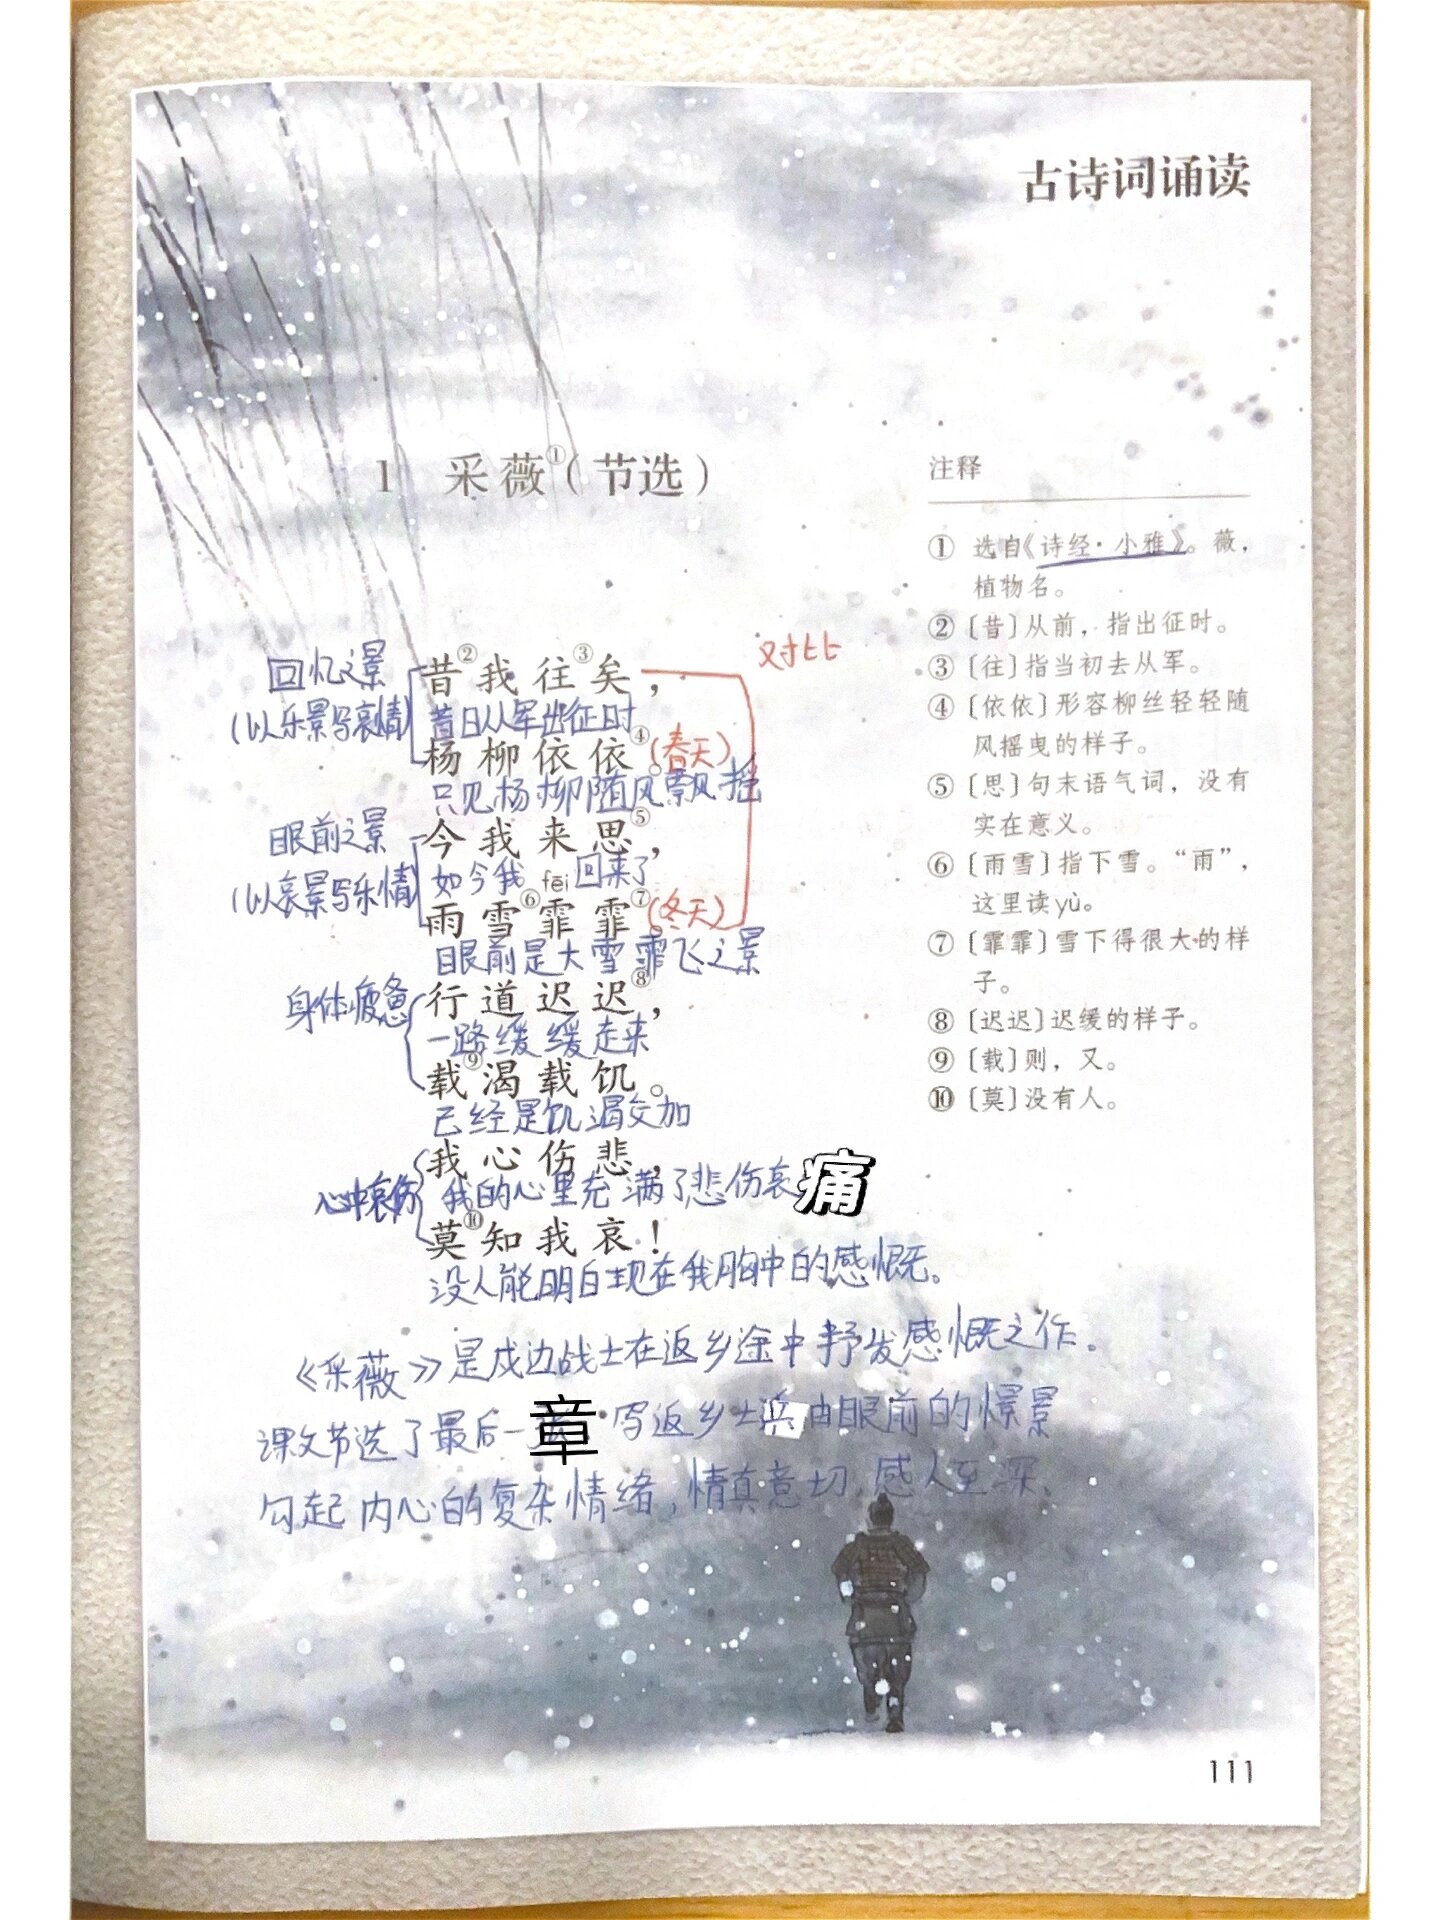 古诗词诵读
1 采薇①（节选）
对比
回忆之景
昔②我往③矣，
(以乐景写哀情)
昔日从军出征时
杨柳依依④。
(春天)
只见杨柳随风飘摇
眼前之景
今我来思⑤，
(以哀景写乐情)
如今我回来了
fēi
雨雪⑥霏霏⑦。
(冬天)
眼前是大雪霏飞之景
身体疲惫
行道迟迟⑧，
一路缓缓走来
载⑨渴载饥。
已经是饥渴交加
心中哀伤
我心伤悲，
我的心里充满了悲伤哀痛
莫⑩知我哀！
没人能明白现在我胸中的感慨。
《采薇》是戍边战士在返乡途中抒发感慨之作。
课文节选了最后一章 写返乡士兵由眼前的憬景
勾起内心的复杂情绪，情真意切，感人至深。
注释
① 选自《诗经·小雅》。薇，
植物名。
② 〔昔〕从前，指出征时。
③ 〔往〕指当初去从军。
④ 〔依依〕形容柳丝轻轻随
风摇曳的样子。
⑤ 〔思〕句末语气词，没有
实在意义。
⑥ 〔雨雪〕指下雪。“雨”，
这里读yù。
⑦ 〔霏霏〕雪下得很大的样
子。
⑧ 〔迟迟〕迟缓的样子。
⑨ 〔载〕则，又。
⑩ 〔莫〕没有人。
111